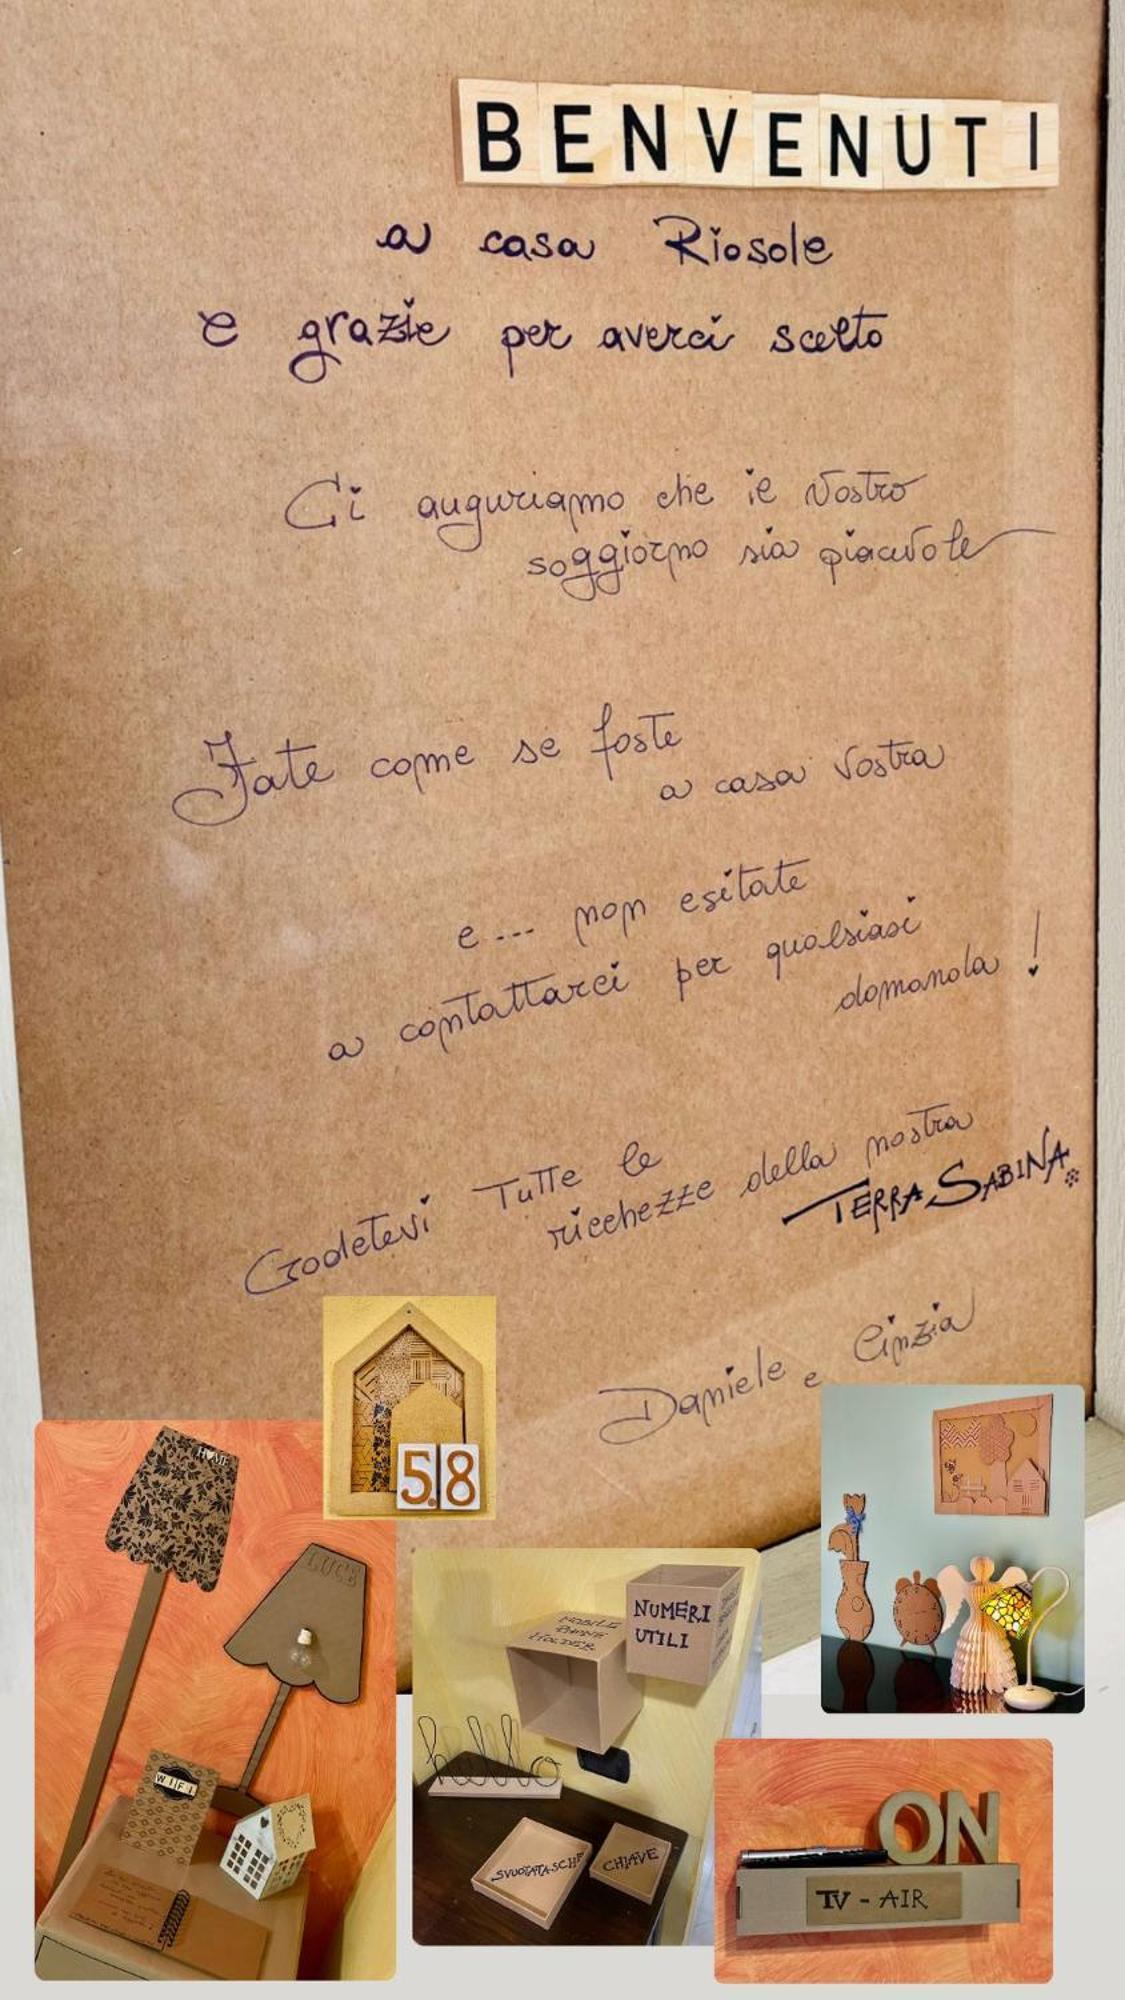 BENVENUTI
a casa Riosole
e grazie per averci scelto
Ci auguriamo che il vostro
soggiorno sia piacevole
Fate come se foste
a casa vostra
e... non esitate
a contattarci per qualsiasi
domanda!
Godetevi tutte le
ricchezze della nostra
TERRA SABINA
Daniele e Cinzia
58
HOME
LUCE
WIFI
MOBILE
PHONE
HOLDER
NUMERI
UTILI
hello
SVUOTATASCHE
CHIAVE
ON
TV - AIR